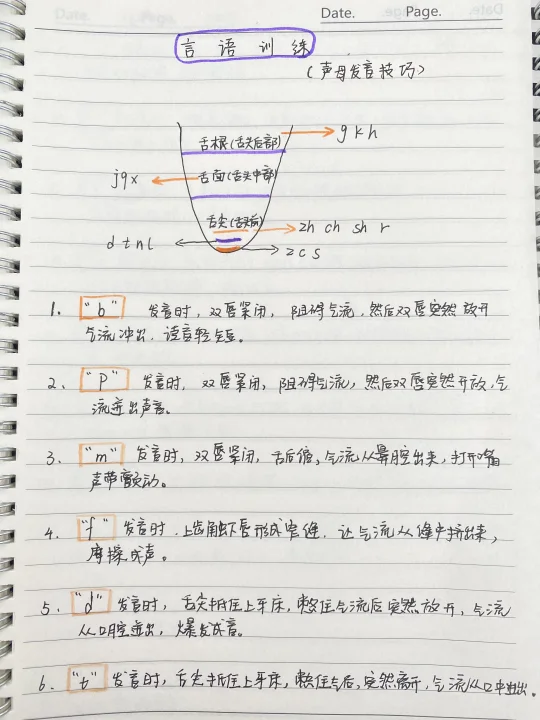 Date. Page.
言语训练
(声母发音技巧)
舌根(舌头后部) g k h
jqx 舌面(舌头中部)
舌尖(舌头前) zh ch sh r
d t n l z c s
1. "b" 发音时, 双唇紧闭, 阻碍气流, 然后双唇突然放开
气流冲出, 读音轻短。
2、"P" 发音时, 双唇紧闭, 阻碍气流, 然后双唇突然开放, 气
流迸出声音。
3. "m" 发音时, 双唇紧闭, 舌后缩, 气流从鼻腔出来, 打开嘴
声带颤动。
4. "f" 发音时, 上齿触下唇形成窄缝, 让气流从缝中挤出来,
摩擦成声。
5: "d" 发音时, 舌尖抵住上牙床, 憋住气流后突然放开, 气流
从口腔迸出, 爆发成音。
6. "t" 发音时, 舌尖抵住上牙床, 憋住气后, 突然离开, 气流从口中迸出。